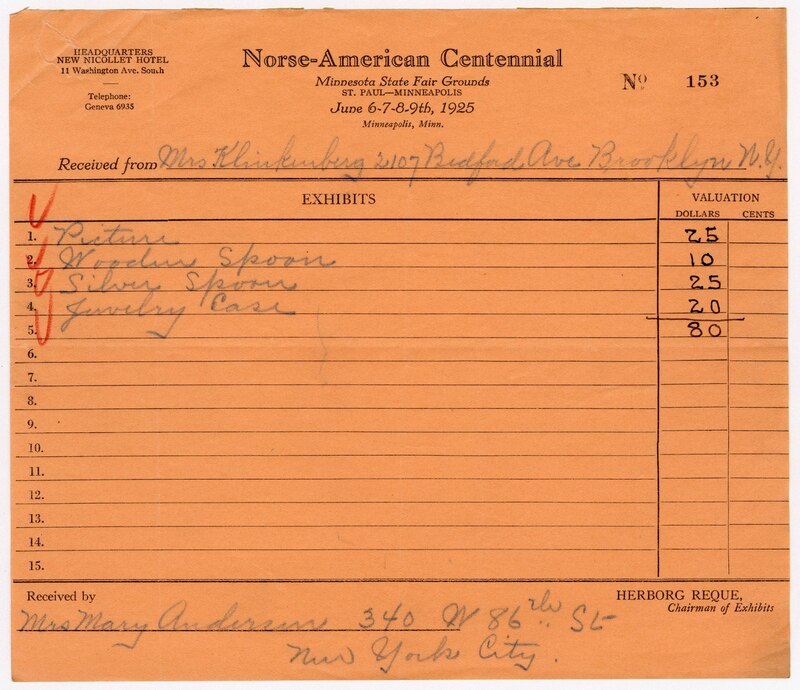 HEADQUARTERS
NEW NICOLLET HOTEL
11 Washington Ave. South
Telephone:
Geneva 6935
Norse-American Centennial
Minnesota State Fair Grounds
ST. PAUL—MINNEAPOLIS
June 6-7-8-9th, 1925
Minneapolis, Minn.
Nº 153
Received from Mrs Klinkenberg 2107 Bedford Ave Brooklyn N.Y.
EXHIBITS VALUATION
DOLLARS CENTS
1. Picture 25
2. Wooden Spoon 10
3. Silver Spoon 25
4. Juvelry Case 20
5. 80
6.
7.
8.
9.
10.
11.
12.
13.
14.
15.
Received by HERBORG REQUE,
Chairman of Exhibits
Mrs Mary Anderson 340 W 86 St
New York City.